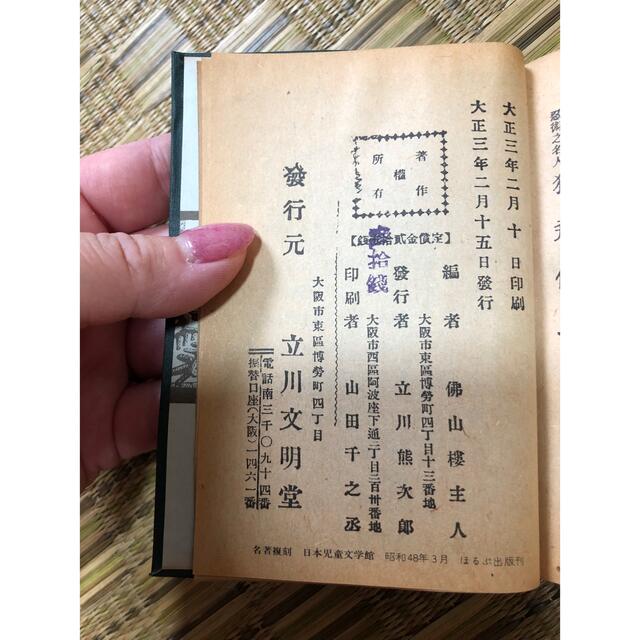 大正三年二月十日印刷
大正三年二月十五日發行
著作
權
所有
【定價金貳拾
拾錢
編者 佛山樓主人
大阪市東區博勞町四丁目十三番地
發行者 立川熊次郎
大阪市西區阿波座下通二丁目二百卅番地
印刷者 山田千之丞
大阪市東區博勞町四丁目
發行元 立川文明堂
電話南三千〇九十四番
振替口座(大阪)一四六一番
名著複刻 日本児童文学館 昭和48年3月 ほるぷ出版刊